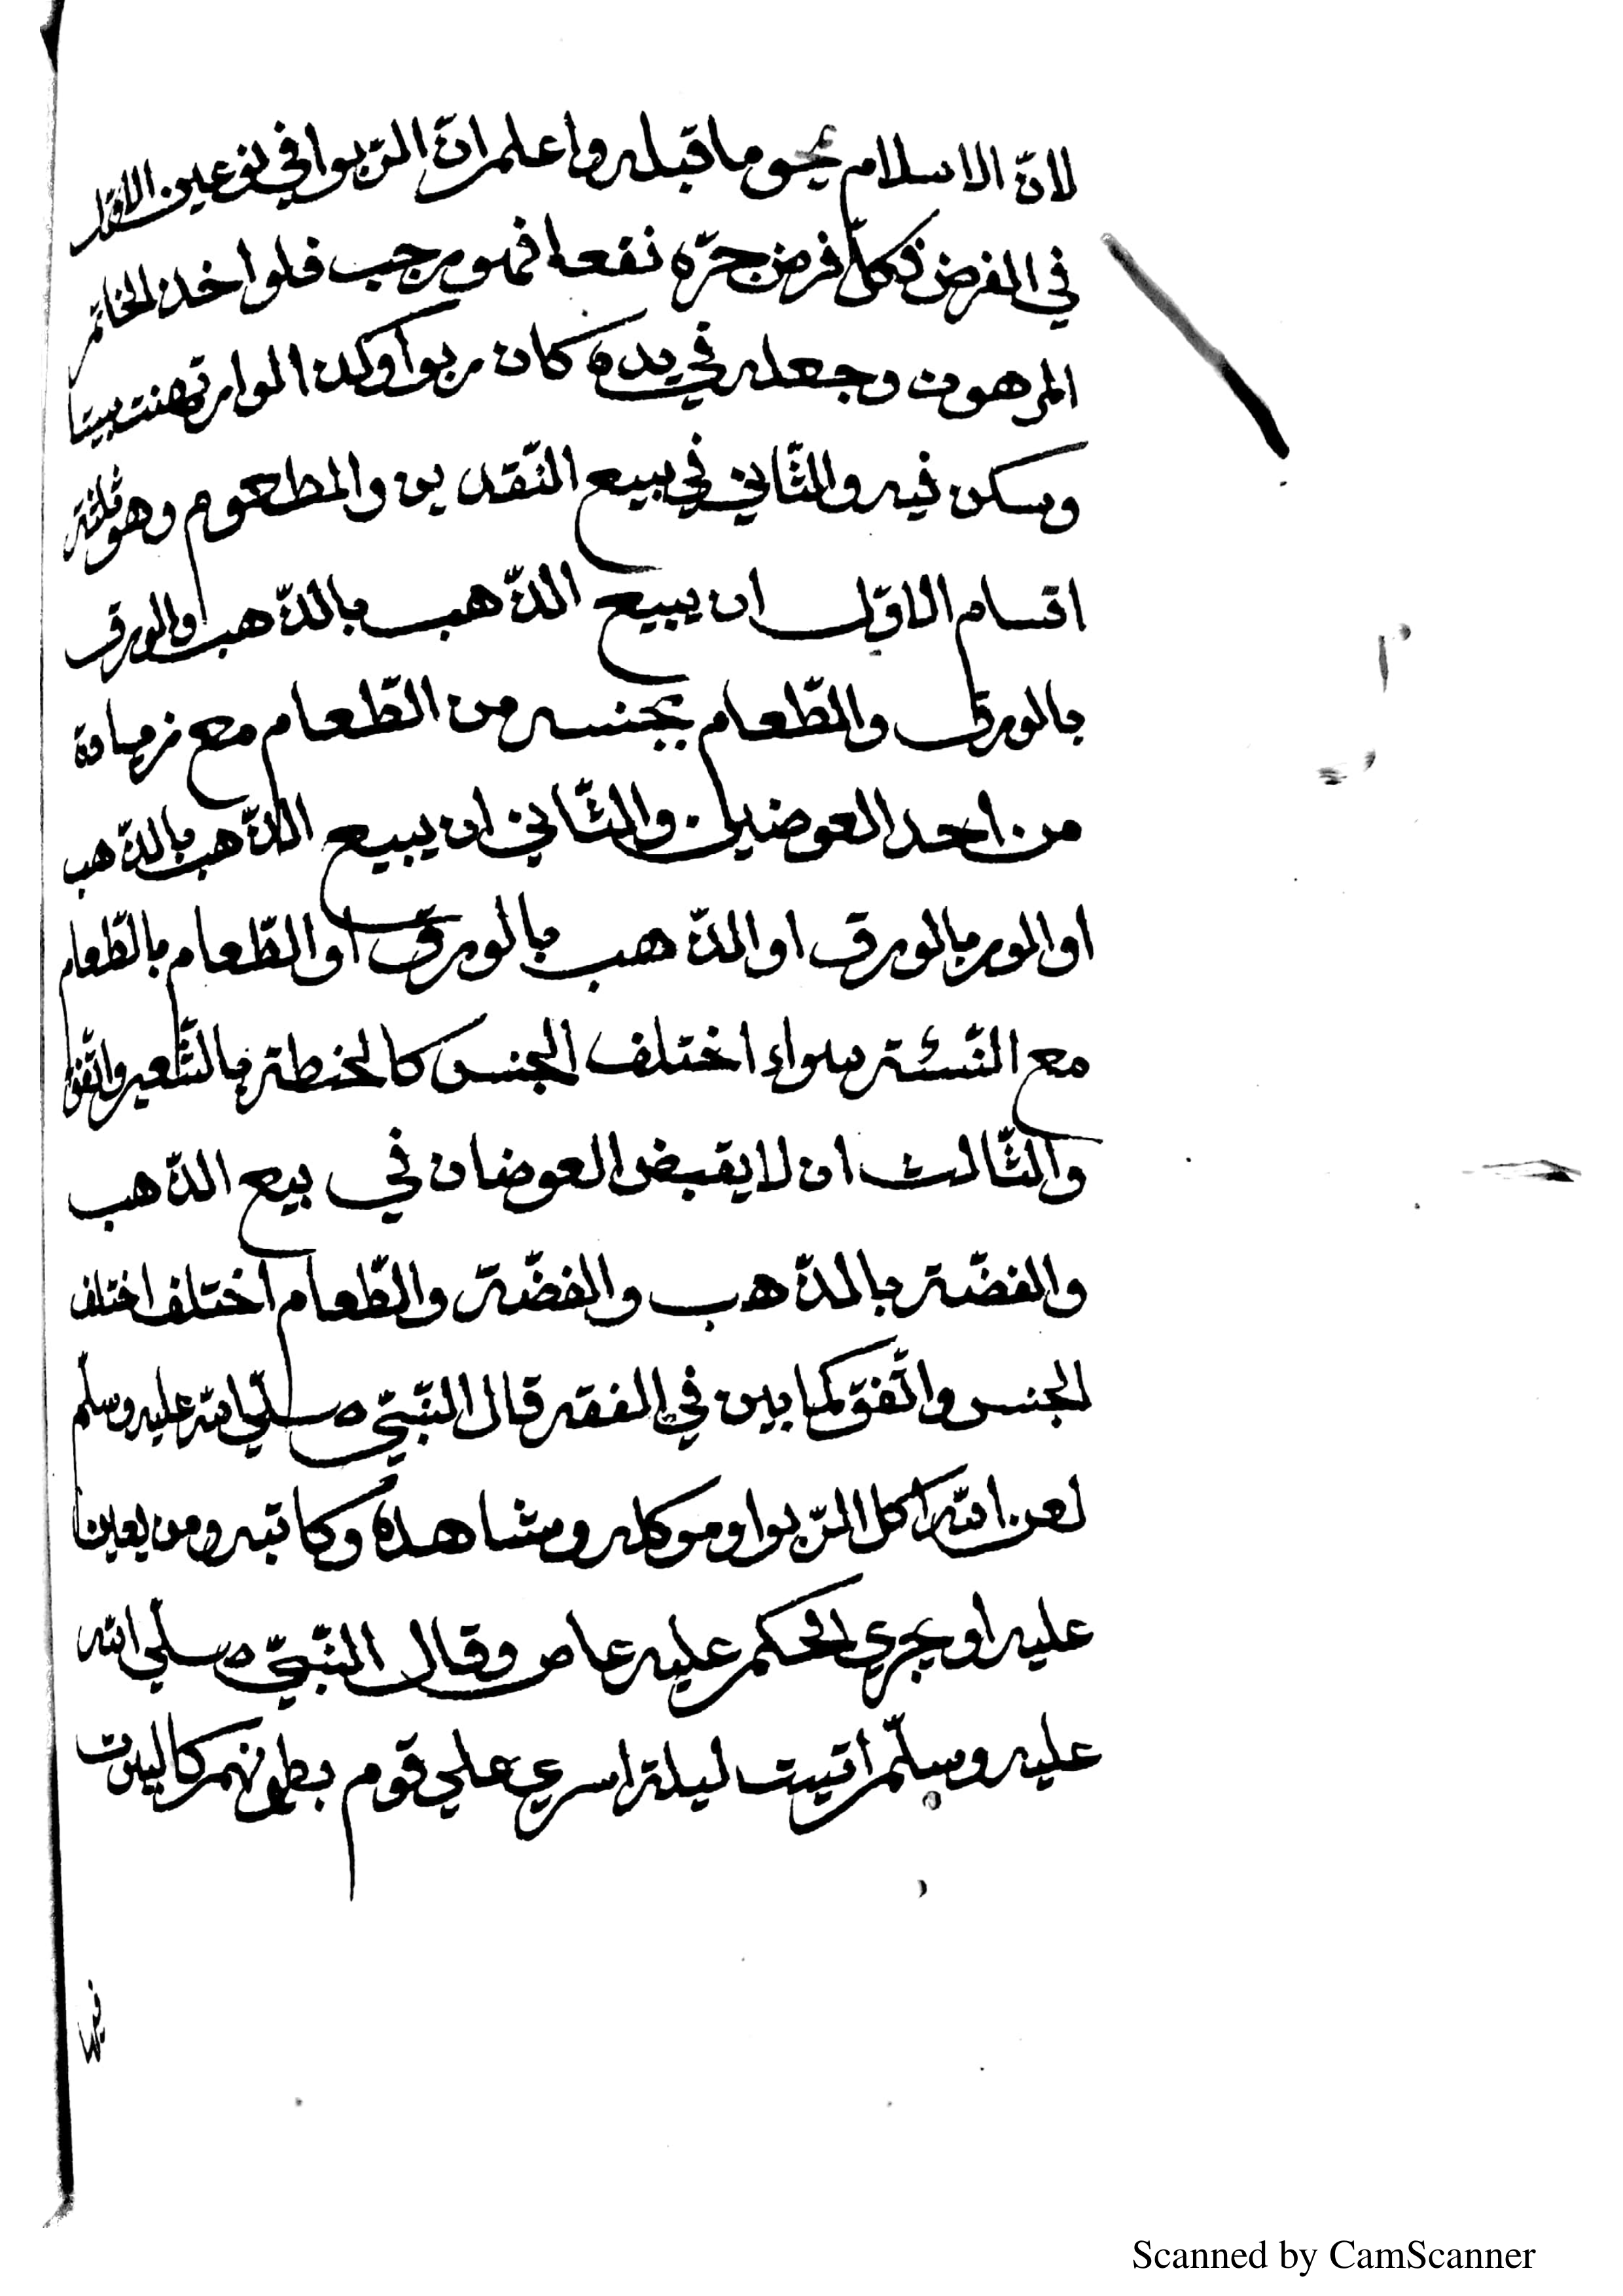 لانّ الاسلام يمحو ما قبله واعلم انّ الرّبوا في نوعين الاوّل
في القرض فكلّ قرض جرّه نفعا فهو رجب فلو اخذ الخاتم
المرهون وجعله في يده كان ربوا وكذا لو ارتهنت بيتا
وسكن فيه والثّاني في بيع النّقدين والمطعوم وهو ثلثة
اقسام الاوّل ان يبيع الذّهب بالذّهب والورق
بالورق والطّعام بجنسه من الطّعام مع زيادة
من احد العوضين والثّاني ان يبيع الذّهب بالذّهب
او الور بالورق او الذّهب بالورق او الطّعام بالطّعام
مع النّسئة سواء اختلف الجنس كالحنطة بالشّعير واتّفقا
والثّالث ان لا يقبض العوضان في بيع الذّهب
والفضّة بالذّهب والفضّة والطّعام اختلف اختلف
الجنس واتّفق كما بين في الفقه قال النّبيّ صلّي الله عليه وسلّم
لعن الله اكل الرّبوا وموكله وشاهده وكاتبه ومن يعين
عليه او يجري الحكم عليه عاص وقال النّبيّ صلّي الله
عليه وسلّم اتيت ليلة اسري علي قوم بطونهم كالبيوت
فيها
Scanned by CamScanner